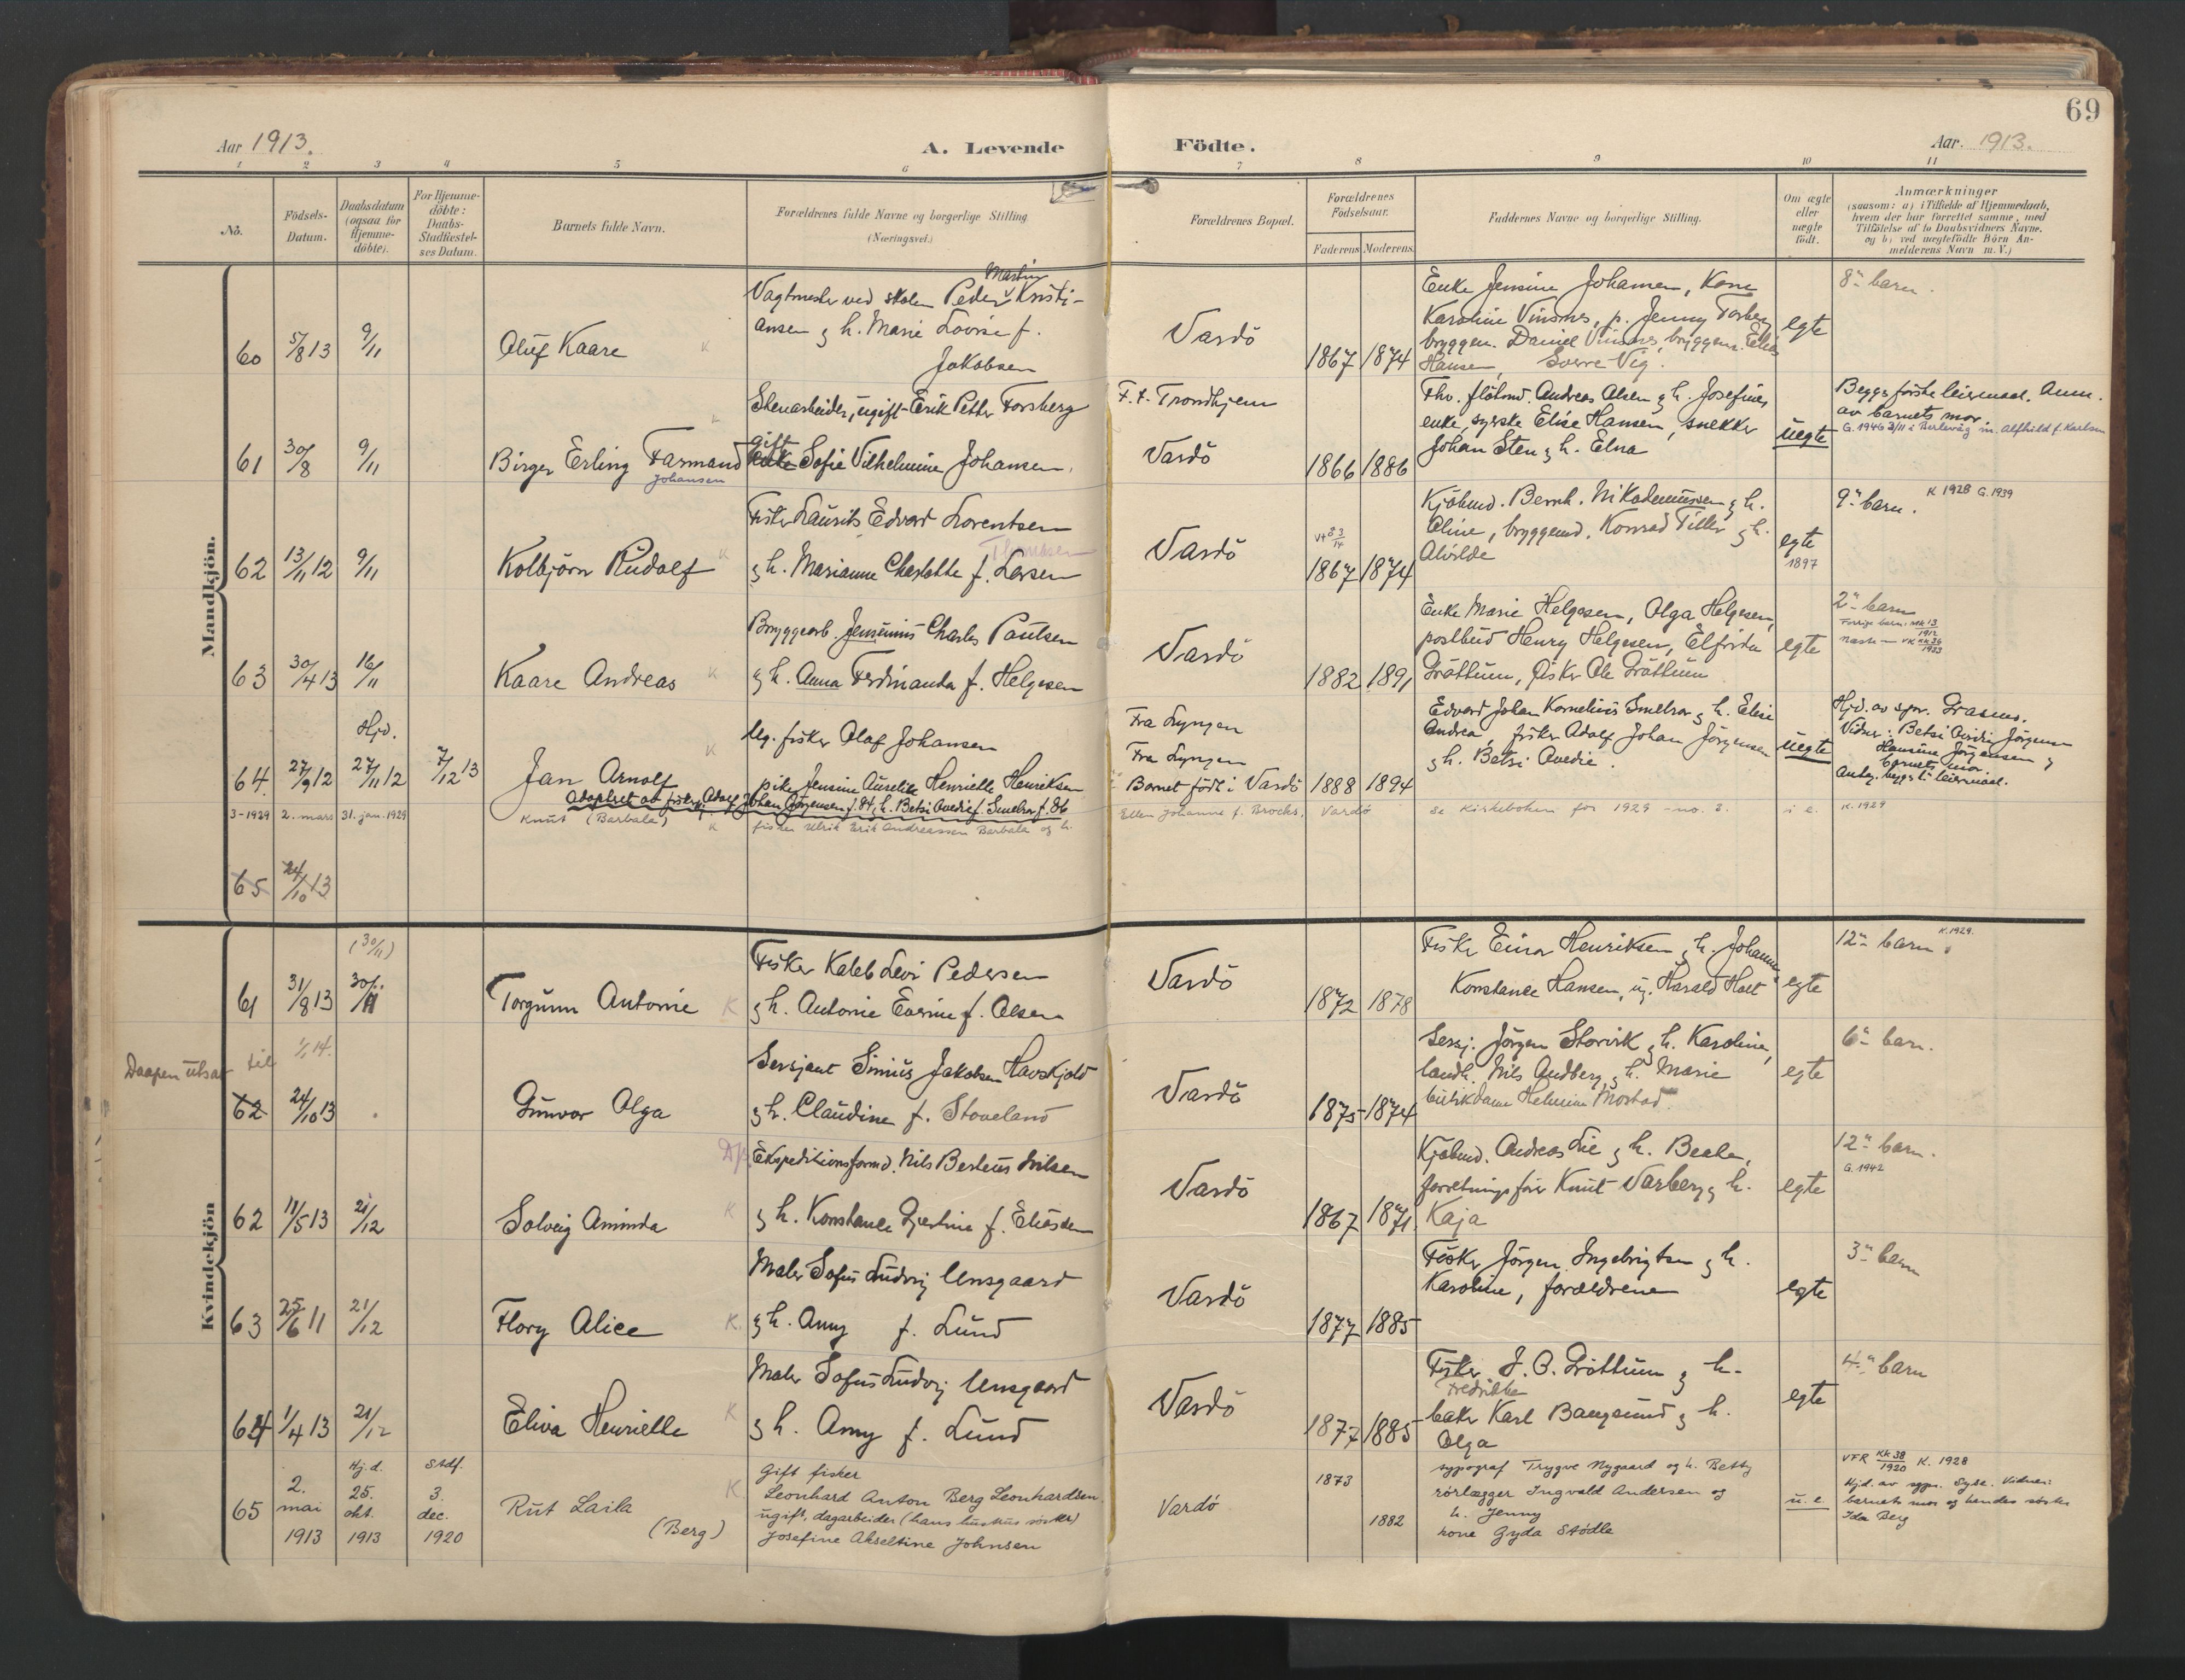 69
Aar 1913.
A. Levende Födte.
Aar. 1913.
1 2 3 4 5 6 7 8 9 10 11
No.
Födsels-Datum.
Daabsdatum (ogsaa for Hjemme-döbte).
For Hjemme-döbte: Daabs-Stadfæstel-ses Datum.
Barnets fulde Navn.
Forældrenes fulde Navne og borgerlige Stilling
(Næringsvei.)
Forældrenes Bopæl.
Forældrenes Födselsaar.
Faderens Moderens
Faddernes Navne og borgerlige Stilling.
Om ægte eller uægte födt.
Anmærkninger
(saasom: a) i Tilfælde af Hjemmedaab, hvem der har forrettet samme, med Tilföielse af to Daabsvidners Navne. og b) ved uægtefödte Börn An-melderens Navn m. V.)
Mandkjön.
60 5/8 13 9/11
Oluf Kaare K
Vagtmester ved skolen Peder Martin Kristi-
ansen & h. Marie Lovise f.
Jakobsen
Vardö
1867 1874
Enke Jensine Johansen, Kone
Karoline Vinsnes, p. Jenny Forberg
bryggem. Daniel Vinsnes, bryggem. Elias
Hansen, Sverre Vig.
egte
8de barn.
61 30/8 9/11
Birger Erling Farmand
Johansen
K
Stenarbeider, ugift Erik Petter Forsberg
gift Sofie Vilhelmine Johansen.
F. t. Trondhjem
Vardö
1866 1886
Fhv. flötmd. Andreas Olsen & h. Josefine,
enke, syerske Elise Hansen, snekker
Johan Sten & h. Elna
uegte
Begges förste leiermaal. Anm.
av barnets mor.
G. 1946 3/11 i Berlevåg m. Alfhild f. Karlsen
62 13/11 12 9/11
Kolbjörn Rudolf K
Fisker Laurits Edvard Lorentsen
Thomassen
& h. Marianne Charlotte f. Larsen
Vardö
1867 1874
Kjöbmd. Bernh. Nikodemussen & h.
Oline, bryggemd. Konrad Tiller & h.
Alvilde
egte
1897
9de barn.
K 1928 G. 1939
63 30/4 13 16/11
Kaare Andreas K
Bryggearb. Jensenius Charles Paulsen
& h. Anna Ferdinanda f. Helgesen
Vardö
1882 1891
Enke Marie Helgesen, Olga Helgesen,
postbud Henry Helgesen, Elfrida
Gröttum, fisker Ole Gröttum
egte
2det barn
64. 27/9 12 Hjd. 27/11 12 7/12 13
Jan Arnolf K
Ug. fisker Olaf Johansen
pike Jensine Aurelie Henrielle Henriksen
Adopteret av fisker Adolf Johan Jörgensen f. 84 & h. Betsi Ovedie f. Smelror f. 86
Fra Lyngen
Fra Lyngen
Barnet födt i Vardö
1888 1894
Edvard Johan Kornelius Smelror & h. Elise
Andrea, fisker Adolf Johan Jörgensen
& h. Betsi Ovedie.
uegte
Hjd. av spr. Grasmo.
Vidner: Betsi Ovidie Jörgensen
Hansine Jörgensen &
barnets mor.
Anteg. begges 1ste leiermaal.
3-1929 2. mars 31. jan. 1929
Knut (Barbala) K
fisker Ulrik Erik Andreassen Barbala og h.
Ellen Johanne f. Brocks, Vardø
se kirkeboken for 1929 - no. 3.
i e. K. 1929
65 24/10 13
Kvindekjön
61 31/8 13 (30/11) 30/11
Torgunn Antonie K
Fisker Kaleb Levi Pedersen
& h. Antonie Evrine f. Olsen
Vardö
1872 1878
Fisker Einar Henriksen & h. Johanne
Konstance Hansen, ug. Harald Holt
egte
12te barn.
K. 1929.
Daapen utsat til 1/1 14.
62 24/10 13
Gunvor Olga
Sersjant Sinius Jakobsen Havskjold
& h. Claudine f. Stoveland
Vardö
1875 1874
Sersj. Jörgen Storvik & h. Karoline,
landh. Nils Lundberg & h. Marie
butikdame Helmine Mostad
egte
6te barn.
62 11/5 13 21/12
Solveig Aminda K
Ekspeditionsformd. Nils Berteus Nilsen
& h. Konstance Gjertine f. Eliassen
Vardö
1867 1871
Kjöbmd. Andreas Lie & h. Beate,
forretningsfører Knut Varberg & h.
Kaja
egte
12te barn.
G. 1942
63 25/6 11 21/12
Flory Alice K.
Maler Sofus Ludvig Unsgaard
& h. Amy f. Lund
Vardö
1877 1885
Fisker Jörgen Ingebrigtsen & h.
Karoline, forældrene
egte
3de barn
64 1/4 13 21/12
Eliva Henrielle K
Maler Sofus Ludvig Unsgaard
& h. Amy f. Lund
Vardö
1877 1885
Fisker J. O. Gröttum & h.
Fredrikke
baker Karl Bangsund & h.
Olga
egte
4de barn
65 2. mai 1913
Hj.d. 25. okt. 1913
Stdf. 3. dec. 1920
Rut Laila
(Berg)
K.
Gift fisker
Leonhard Anton Berg Leonhardsen.
ugift, dagarbeider (hans hustrus söster)
Josefine Akseltine Johnsen
Vardø
1873
1882
typograf Trygve Nygaard og h. Betty
rörlægger Ingvald Andersen og
h. Jenny
kone Gyda Stødle
u. e.
VFR KK 38/1920 K. 1928
Hjd. av sygpl. Sydse. Vidner:
barnets mor og hendes söster
Ida Berg